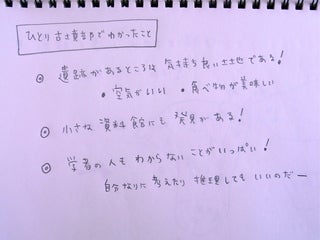 ひとり古墳部でわかったこと
◎ 遺跡があるところは 気持ち良い土地である!
・空気がいい ・食べ物が美味しい
◎ 小さな資料館にも 発見がある!
◎ 学者の人も わからないことがいっぱい!
自分なりに 考えたり 推理しても いいのだー